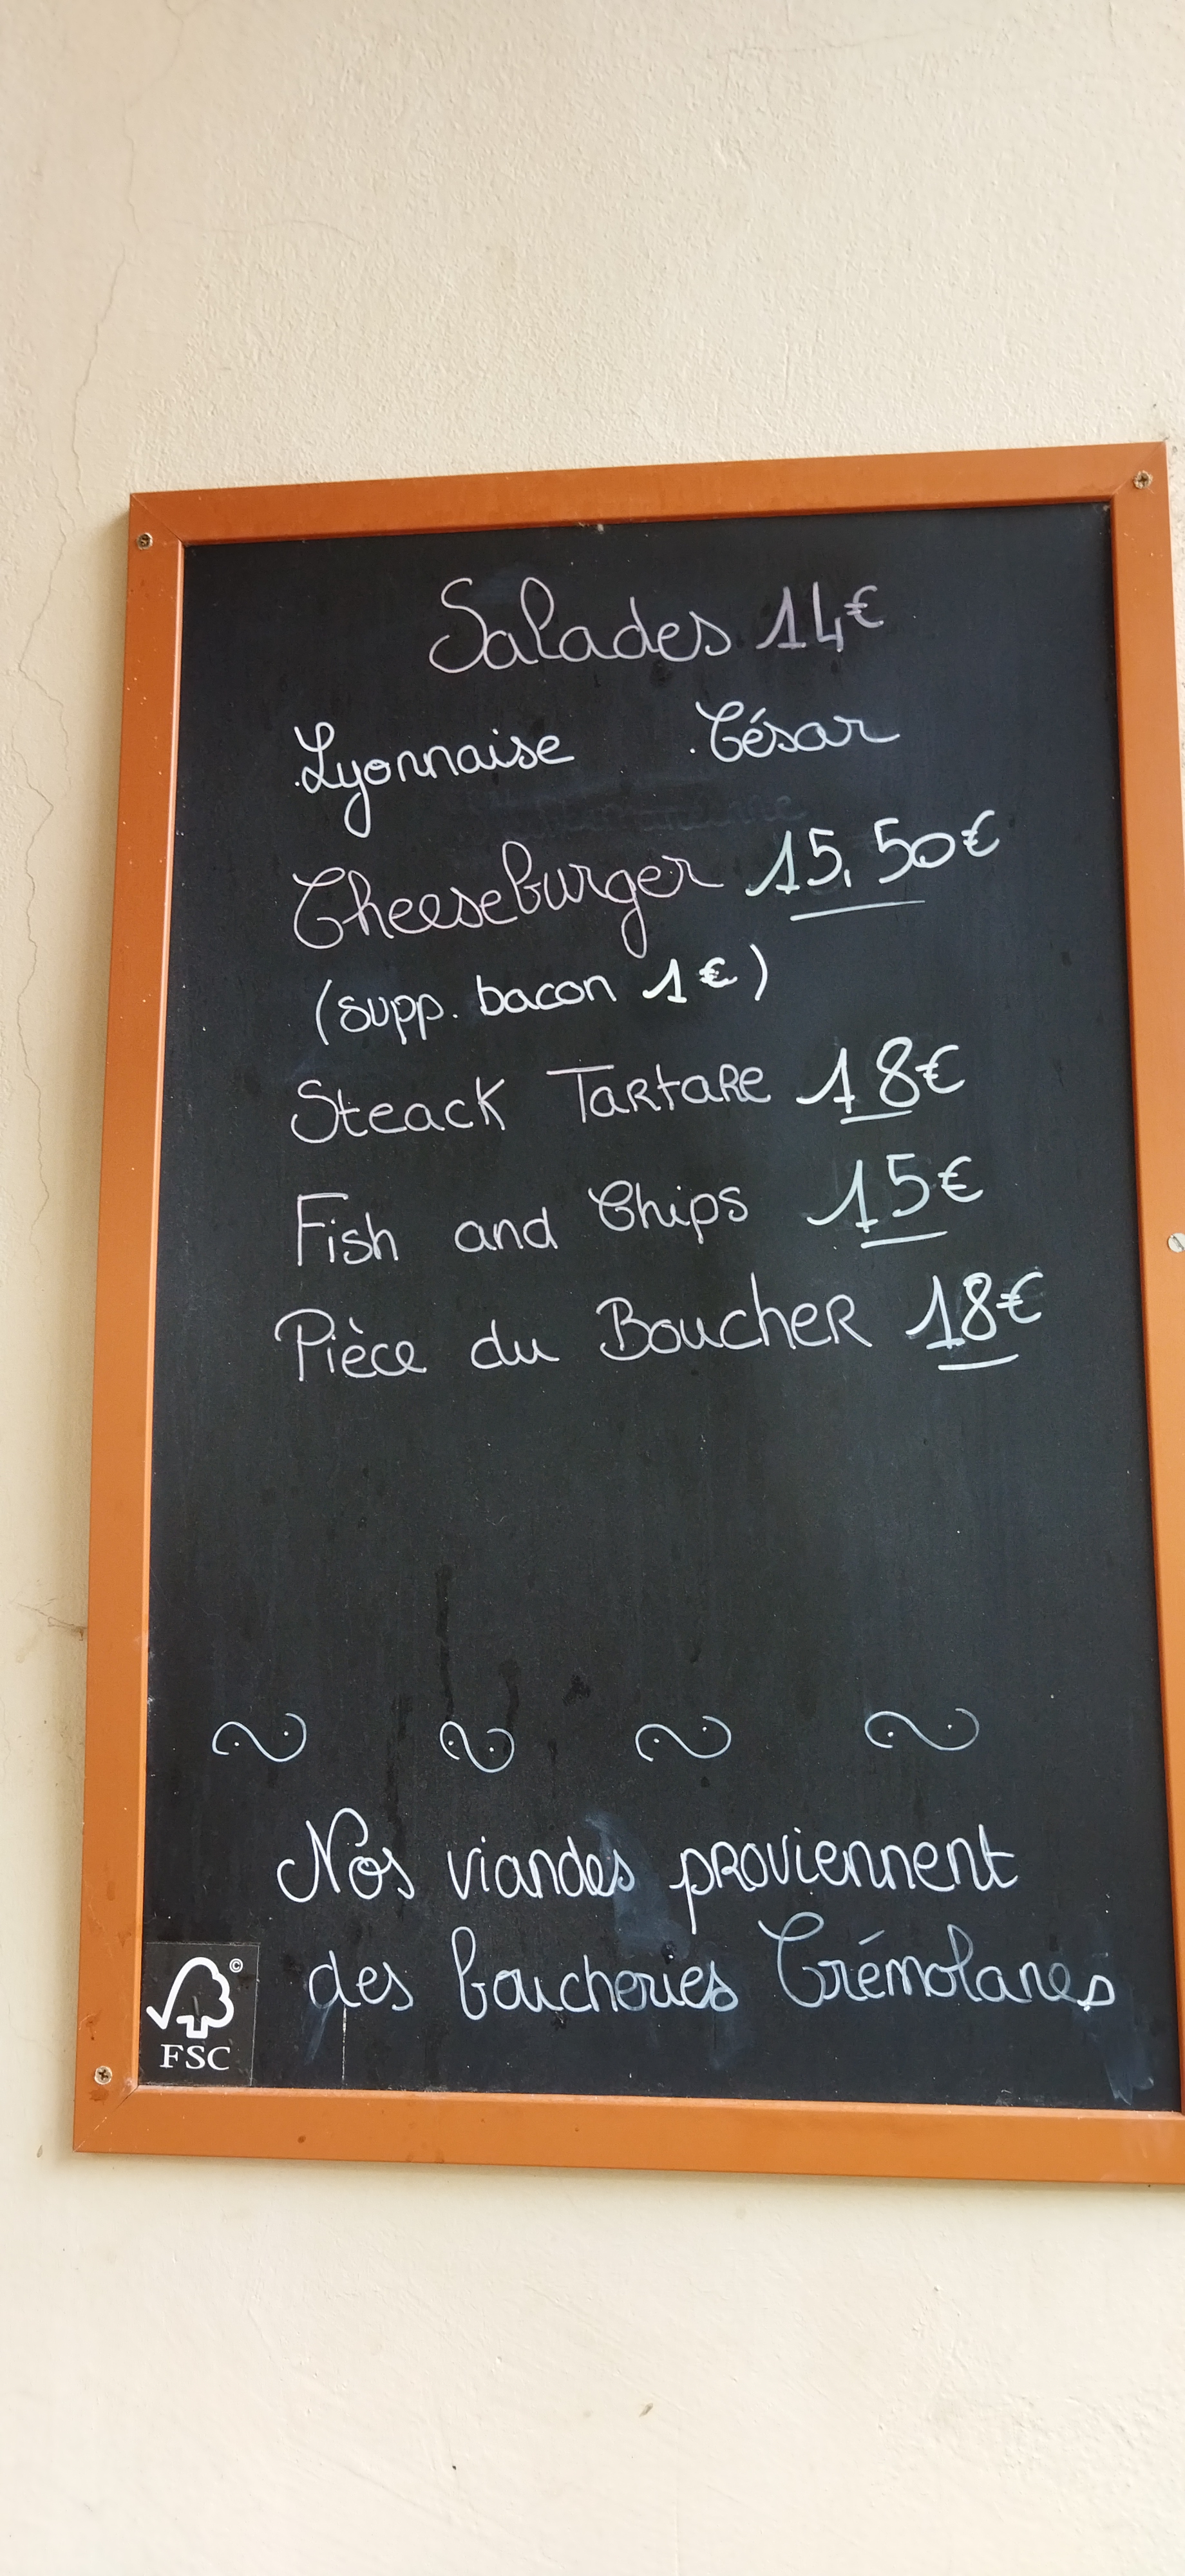 Salades 14€
.Lyonnaise .César
Cheeseburger 15,50€
(supp. bacon 1€)
Steack Tartare 18€
Fish and Chips 15€
Pièce du Boucher 18€
Nos viandes proviennent
des boucheries Crémolanes
©
FSC